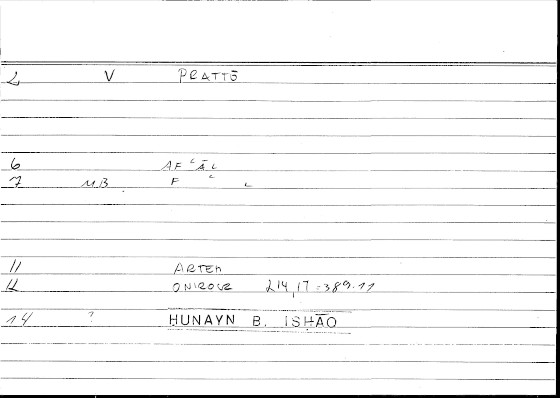 2 V PRATTŌ
6 AFʿĀL
7 MB F ʿ L
11 ARTEM
12 ONIROCR 214,17=389.11
14 ? HUNAYN B. ISHĀQ